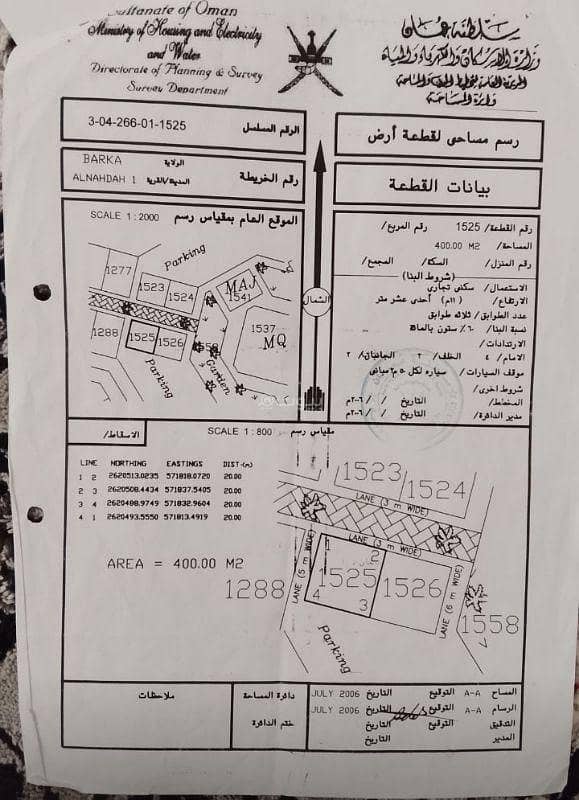 Sultanate of Oman
Ministry of Housing and Electricity
and Water
Directorate of Planning & Survey
Survey Department
سلطنة عمان
وزارة الإسكان والكهرباء والمياه
دائرة المساحة
3-04-266-01-1525
الرقم المسلسل
رسم مساحى لقطعة أرض
BARKA
الولاية
ALNAHDAH 1
المدينة/القرية
رقم الخريطة
بيانات القطعة
SCALE 1 : 2000
الموقع العام بمقياس رسم
رقم القطعة/ 1525
رقم المربع/
المساحة/ 400.00 M2
رقم المنزل/
السكة/
المجمع/
(شروط البنا)
الاستعمال/ سكنى تجارى
الارتفاع/ (١١م) أحدى عشر متر
عدد الطوابق/ ثلاثه طوابق
نسبة البنا/ ٦٠٪ ستون بالمائة
الارتدادات/
الامام/ ٤
الخلف/ ٢
الجانبان/ ٢
موقف السيارات/ سياره لكل ٥٠م٢ مبانى
شروط اخرى/
المخطط/
التاريخ / /٢٠٠٦
مدير الدائرة/
التاريخ / /٢٠٠٦
الشمال
Parking
1277
1523
1524
MAJ
1541
1288
1525
1526
1537
MQ
1558
Garden
Parking
الاسقاط/
SCALE 1 : 800
مقياس رسم
LINE NORTHING EASTINGS DIST-(m)
1 2 2620513.0235 571818.0720 20.00
2 3 2620508.4434 571837.5405 20.00
3 4 2620488.9749 571832.9604 20.00
4 1 2620493.5550 571813.4919 20.00
AREA = 400.00 M2
1523
1524
LANE (3 m WIDE)
LANE (3 m WIDE)
LANE (5 m WIDE)
LANE (6 m WIDE)
1288
1
2
1525
4
3
1526
1558
Parking
ملاحظات
دائرة المساحة
ختم الدائرة
المساح A-A التوقيع التاريخ JULY 2006
الرسام A-A التوقيع التاريخ JULY 2006
التدقيق التوقيع التاريخ
المدير التاريخ